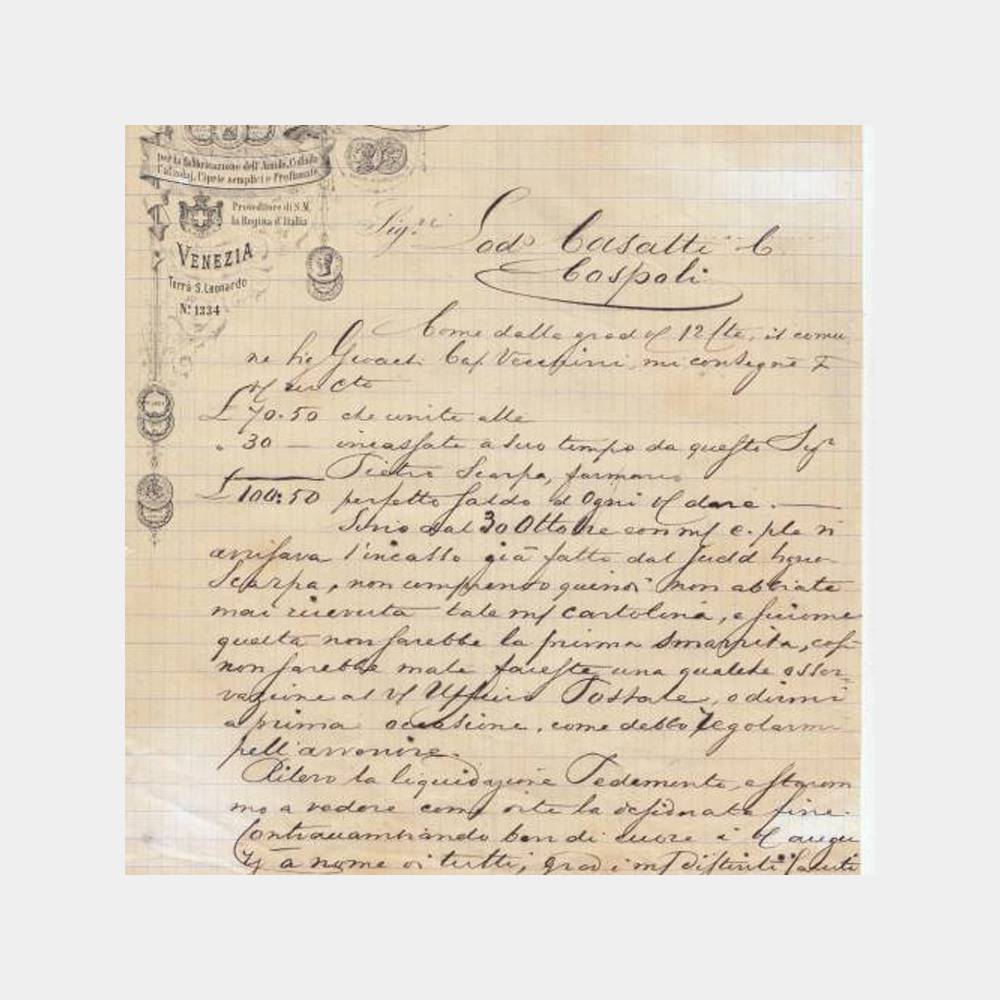 per la fabbricazione dell'Amido, Collado
Calzolaj, Ciprie semplici e Profumate
Proveditore di S.M.
la Regina d'Italia
VENEZIA
Terrà S. Leonardo
No. 1334
Sigri Lodo Casatti & C
Caspoli
Come dalla grad 12 il comu
ne Cap Vecchini, mi consegnò
£ 70.50 che unite alle
" 30 — incassate a suo tempo da questo Sigr
Pietro Scarpa, farmac
£ 100.50 perfetto saldo d'ogni dare. —
Sino dal 30 Ottobre con c. vi
avvisava l'incasso già fatto dal
Scarpa, non comprendo quindi non abbiate
mai ricevuta tale cartolina, e siccome
questa non sarebbe la prima smarrita, così
non sarebbe male faceste una qualche osser-
vazione al Ufficio Postale, o dirmi
a prima occasione, come debbo regolarmi
pell'avvenire.
Rilevo la liquidazione Pedemonte, e staremo
mo a vedere come la desiderata fine.
Contraccambiando ben di cuore i augu
rj a nome di tutti, grad i distinti saluti